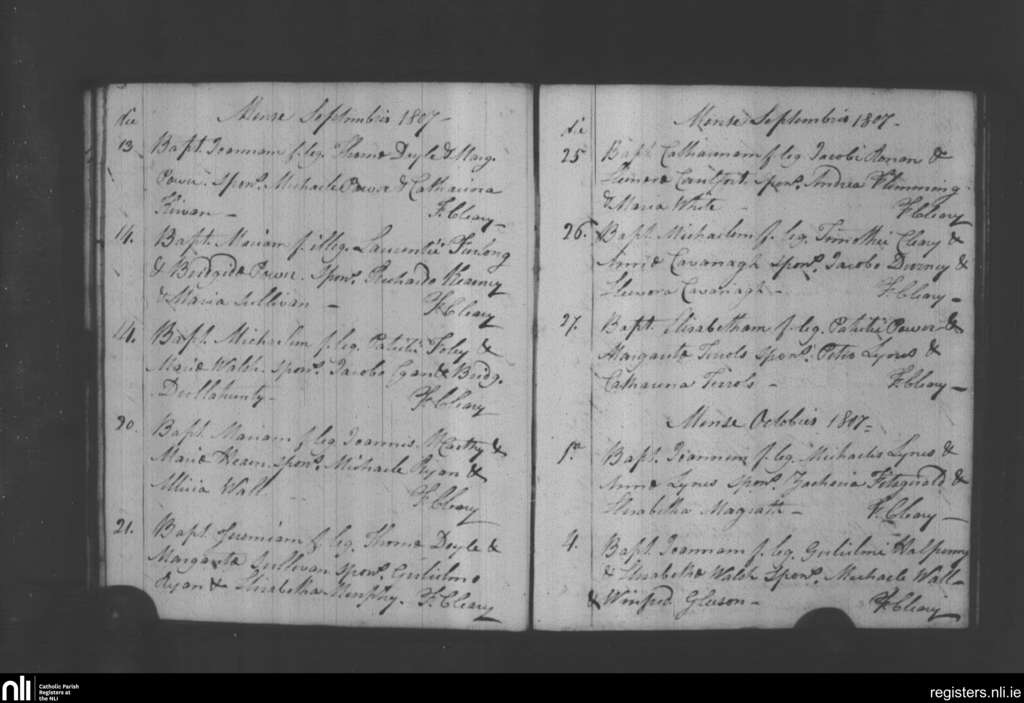 die
Mense Septembris 1807 -
13 Bapt. Joannam f. leg. Thoma Doyle & Marg.
Power. Sponr. Michaele Power & Catharina
Kirwan -
F. Cleary -
14. Bapt. Mariam f. illeg. Laurentii Furlong
& Bridgidæ Power. Sponr. Richardo Kearney
& Maria Sullivan -
F. Cleary
14. Bapt. Michaelem f. leg. Patritii Foley &
Mariæ Walsh. Sponr. Jacobo & Bridg.
Dullahunty -
F. Cleary
20. Bapt. Mariam f. leg. Joannis &
Mariæ Hearn. Sponr. Michaele Ryan &
Allicia Wall
F. Cleary
21. Bapt. Jeremiam f. leg. Thoma Doyle &
Margaritæ Sullivan Sponr. Gulielmo
Ryan & Elisabetha Murphy. F. Cleary
die
Mense Septembris 1807 -
25 Bapt. Catharinam f. leg. Jacobi Ronan &
Sponr. Andrea Flemming
& Maria White -
F. Cleary
26. Bapt. Michaelem f. leg. Timothei Cleary &
Annæ Cavanagh Sponr. Jacobo &
Elenora Cavanagh -
F. Cleary -
27. Bapt. Elisabetham f. leg. Patritii Power &
Margaritæ Sponr. Petro Lynes &
Catharina -
F. Cleary -
Mense Octobris 1807 =
Bapt. Joannem f. leg. Michaelis Lynes &
Annæ Lynes Sponr. Zacharia Fitzgerald &
Elisabetha Magrath -
F. Cleary -
4. Bapt. Joannam f. leg. Gulielmi Halpenny
& Elisabethæ Walsh Sponr. Michaele Wall
& Winifred Gleeson -
F. Cleary
nli
Catholic Parish
Registers at
the NLI
registers.nli.ie